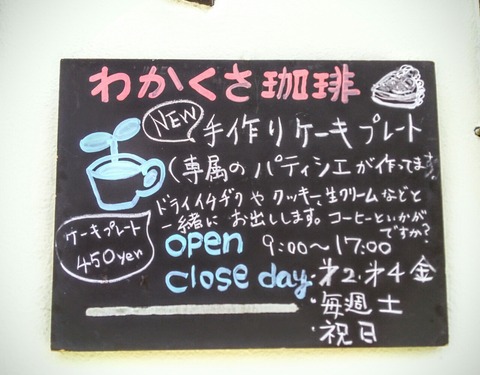 わかくさ珈琲
NEW
手作りケーキプレート
(専属のパティシエが作ってます
ドライイチヂクやクッキー、生クリームなどと
一緒にお出しします。コーヒーといかが
ですか?
ケーキプレート
450yen
open 9:00〜17:00
close day ・第2.第4金
・毎週土
・祝日